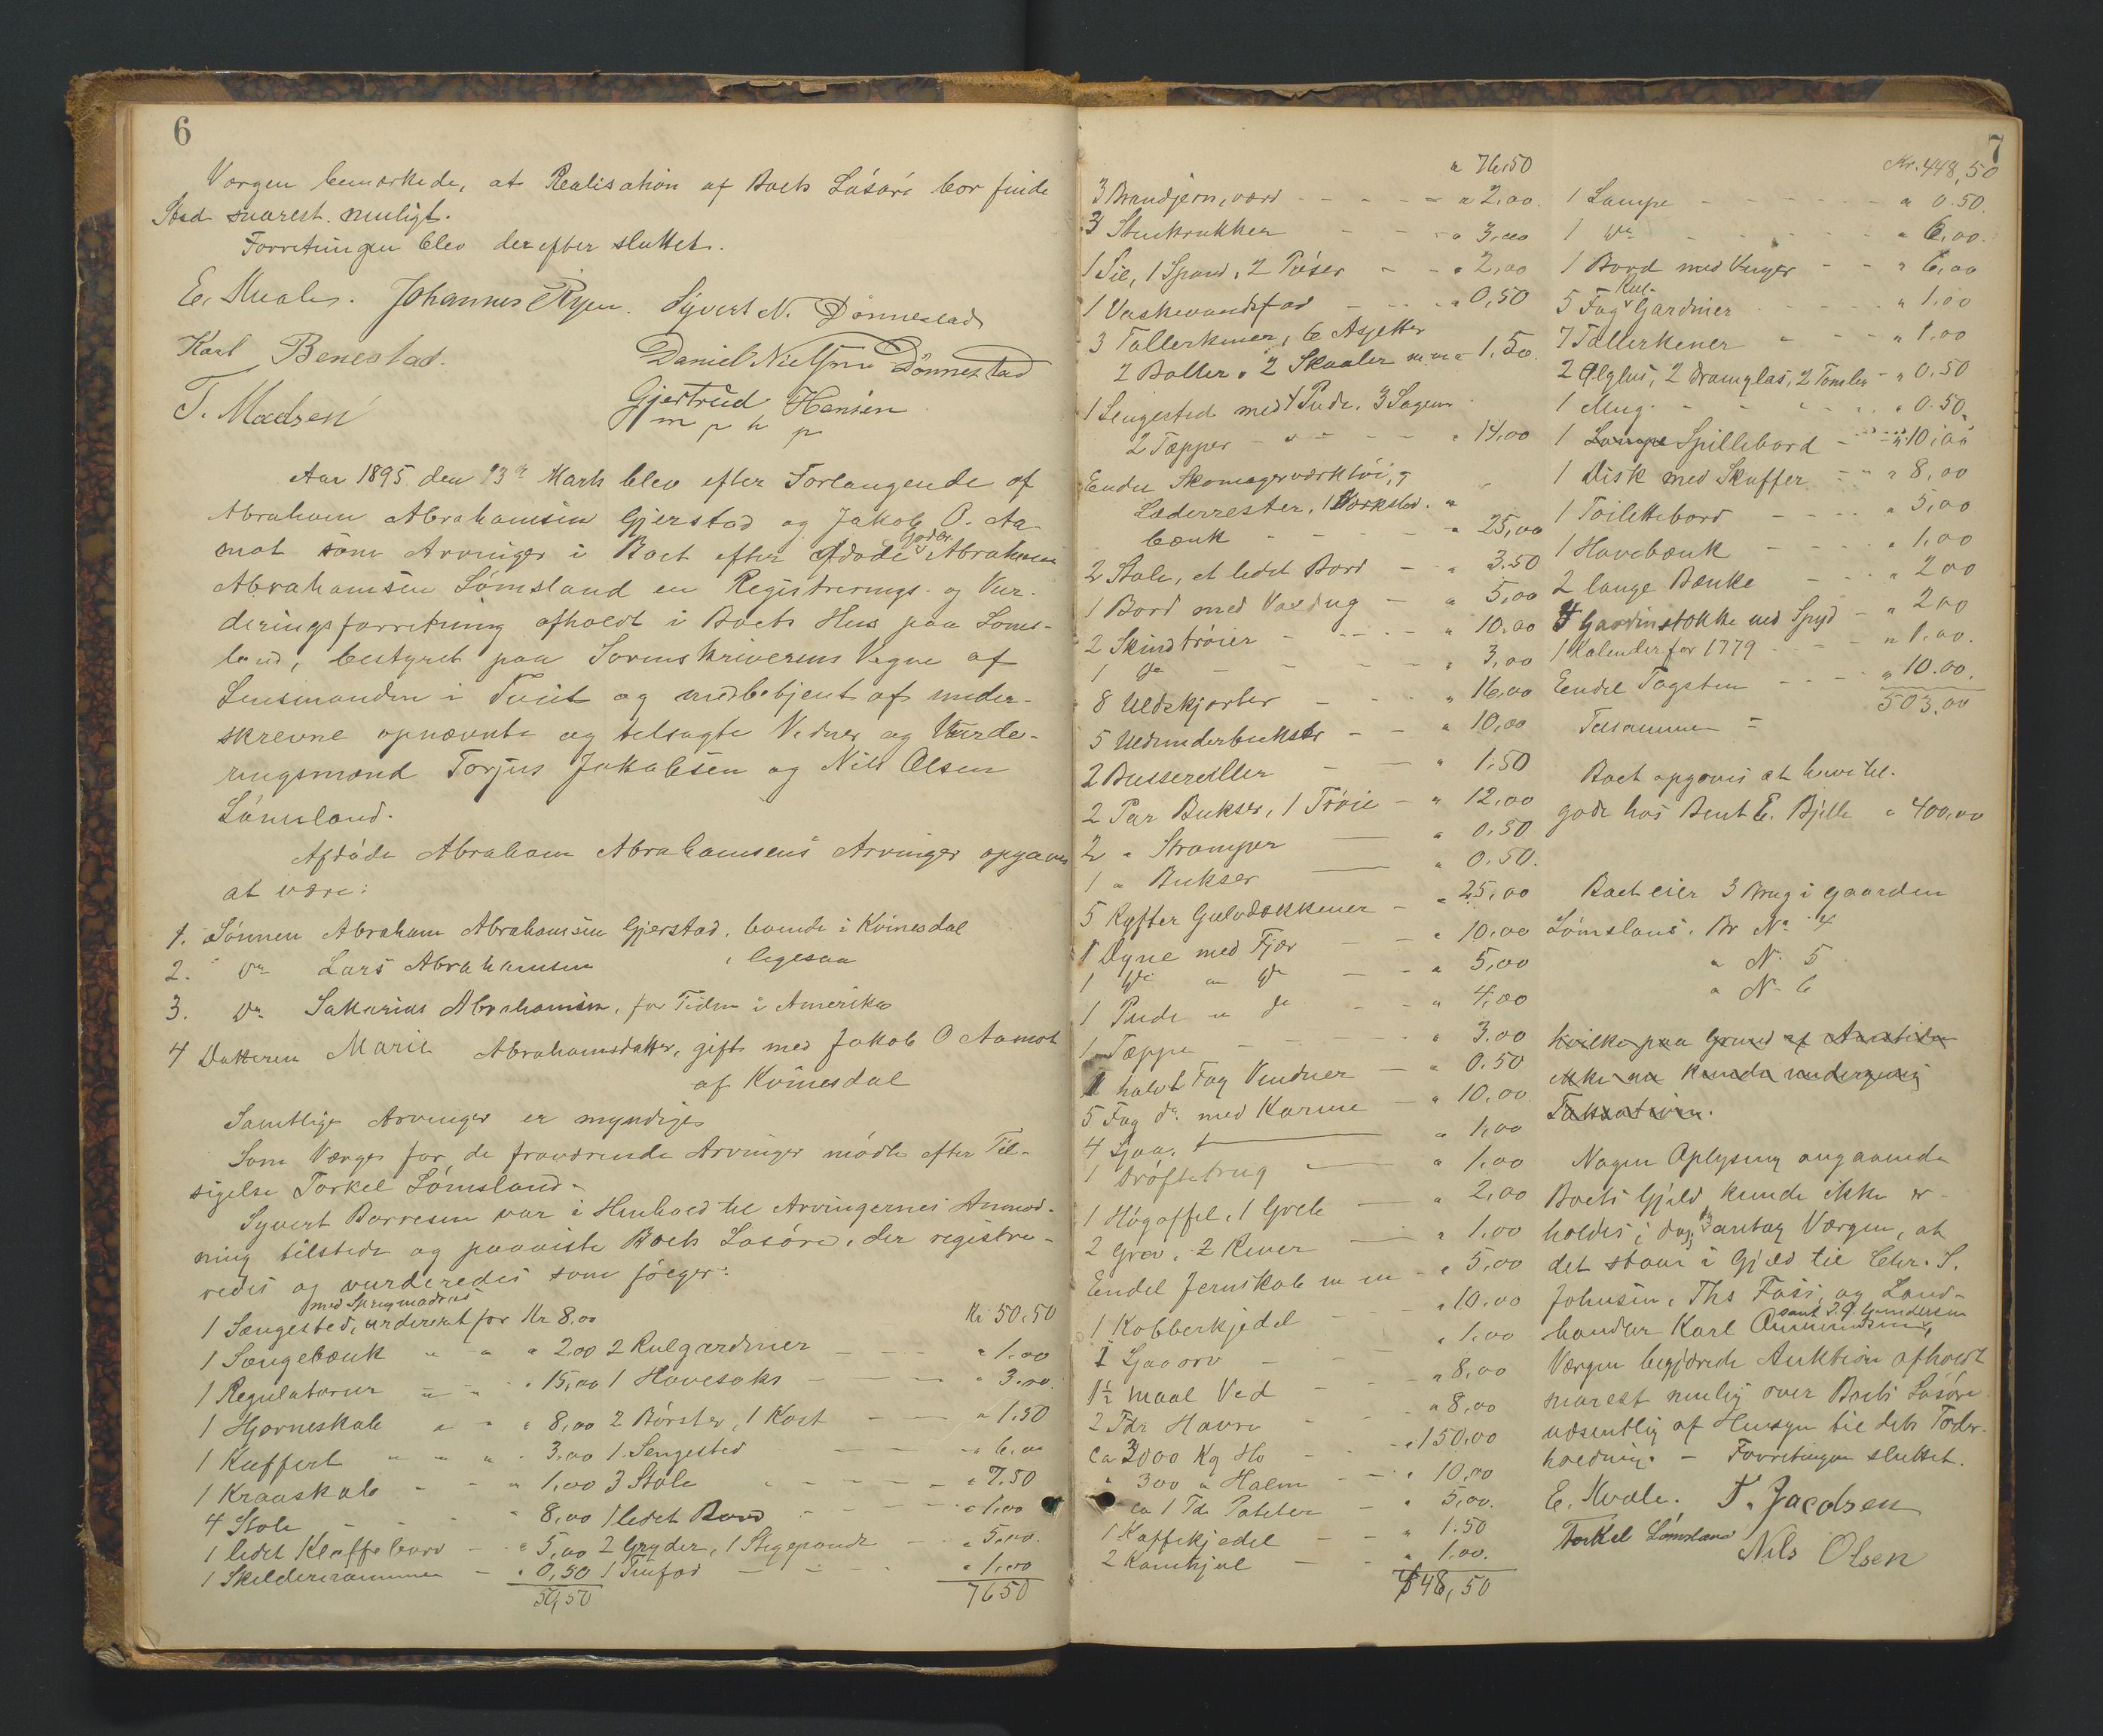 6
Værgen bemærkede, at Realisation af Boets Løsøre bør finde
Sted snarest muligt.
Forretningen blev derefter sluttet.
E. Kvale. Johannes Ryen. Syvert N. Dønnestad
Karl Benestad. Daniel Nielsen Dønnestad
T. Madsen Gjertrud Hansen
m p h p
Aar 1895 den 13de Marts blev efter Forlangende af
Abraham Abrahamsen Gjerstad og Jakob O. Aa-
mot som Arvinger i Boet efter afdøde Gaardbr. Abraham
Abrahamsen Lømsland en Registrerings- og Vur-
deringsforretning afholdt i Boets Hus paa Løms-
land, bestyret paa Sorenskriverens Vegne af
Lensmanden i Tveit og medbetjent af under-
skrevne opnævnte og tilsagte Vidner og Vurde-
ringsmænd Torjus Jakobsen og Nils Olsen
Lømsland.
Afdøde Abraham Abrahamsens Arvinger opgaves
at være:
1. Sønnen Abraham Abrahamsen Gjerstad, boende i Kvinesdal
2. Do Lars Abrahamsen, ligesaa
3. Do Sakarias Abrahamsen, for Tiden i Amerika
4 Datteren Marie Abrahamsdatter, gift med Jakob O Aamot
af Kvinesdal
Samtlige Arvinger er myndige
Som Værge for de fraværende Arvinger mødte efter Til-
sigelse Torkel Lømsland.
Syvert Børresen var i Henhold til Arvingernes Anmod-
ning tilstede og paaviste Boets Løsøre, der registre-
redes og vurderedes som følger:
med Springmadras
1 Sængested, vurderet for Kr 8,00
1 Sængebænk " " " 2,00
1 Regulatorur " " " 15,00
1 Hjørneskab " " " 8,00
1 Kuffert " " " 3,00
1 Kraaskab " " " 1,00
4 Stole " 8,00
1 lidet Klaffebord " 5,00
1 Skilderiramme " 0,50
50,50
Kr 50,50
2 Rulgardiner " 1,00
1 Havesaks " 3,00
2 Børster, 1 Kost " 1,50
1 Sengested " 6,00
3 Stole " 7.50
1 lidet Bord " 1,00
2 Gryder, 1 Stegepande " 5,00
1 Tinfad " 1,00
7650
" 76,50
3 Brandjern, værd " 2,00
3 Stenkrukker " 3,00
1 Sil, 1 Spand, 2 Pøser " 2,00
1 Vaskevandsfad " 0,50
3 Tallerkener, 6 Asjetter
2 Boller, 2 Skaaler m m " 1,50
1 Sengested med 1 Pude, 3 Lagen
2 Tæpper " 14,00
Endel Skomagerværktøi,
Læderrester, 1 Værksted-
bænk " 25,00
2 Stole, et lidet Bord " 3.50
1 Bord med Voxdug " 5,00
2 Skindtrøier " 10,00
1 Do " 3,00
8 Uldskjorter " 16,00
5 Uldunderbukser " 10,00
2 Busseruller " 1.50
2 Par Bukser, 1 Trøie " 12,00
2 " Strømper " 0.50
1 " Bukser " 0.50.
5 Ryffer Gulvdækkener " 25,00
1 Dyne med Fjær " 10,00
1 Do " Do " 5,00
1 Pude " Do " 4,00
1 Tæppe " 3.00
1 halvt Fag Vinduer " 0.50
5 Fag do. med Karme " 10,00
4 Ljaa. " 1,00
1 Drøftetrug " 1,00
1 Høgaffel, 1 Greb " 2,00
2 Grev, 2 River " 1.00
Endel Jernskab m m " 5,00
1 Kobberkjedel " 10.00
1 Ljaaorv " 1,00
1½ Maal Ved " 8,00
2 Tdr Havre " 8,00
ca 3000 Kg Hø " 150,00
" 300 " Halm " 10,00
ca 1 Td. Poteter " 5,00.
1 Kaffekjedel " 1.50
2 Kamhjul " 1,00.
448,50
7
Kr. 448,50
1 Lampe " 0.50.
1 Do " 6,00.
1 Bord med Vinger " 6,00
5 Fag Rul-Gardiner " 1,00
7 Tallerkener " 1,00
2 Ølglas, 2 Dramglas, 2 Tomler " 0.50
1 Mug. " 0.50
1 Lampe Spillebord " 10,00
1 Disk med Skuffer " 8,00
1 Toilettebord " 5,00
1 Havebænk " 1,00
2 lange Bænke " 2,00
4 Gardinstokke med Spyd " 2,00
1 Kalender for 1779 " 1,00.
Endel Tagsten " 10.00.
Tilsammen = 503,00
Boet opgaves at have til-
gode hos Bent E. Bjelle " 400,00
Boet eier 3 Brug i Gaarden
Lømsland. Br No 4
" No 5
" No 6
hvilke paa Grund af
ikke nu kunde undergaaes
Taksation.
Nogen Oplysning angaaende
Boets Gjæld kunde ikke er-
holdes i Dag, dog antog Værgen, at
det staar i Gjæld til Chr. S.
Johnsen, Ths Fosi, og Land-
handler Karl samt S. O. Gundersen
Værgen begjærede Auktion afholdt
snarest mulig over Boets Løsøre
væsentlig af Hensyn til dets Foder-
holdning. — Forretningen sluttet.
E. Kvale. T. Jacobsen
Torkel Lømsland Nils Olsen